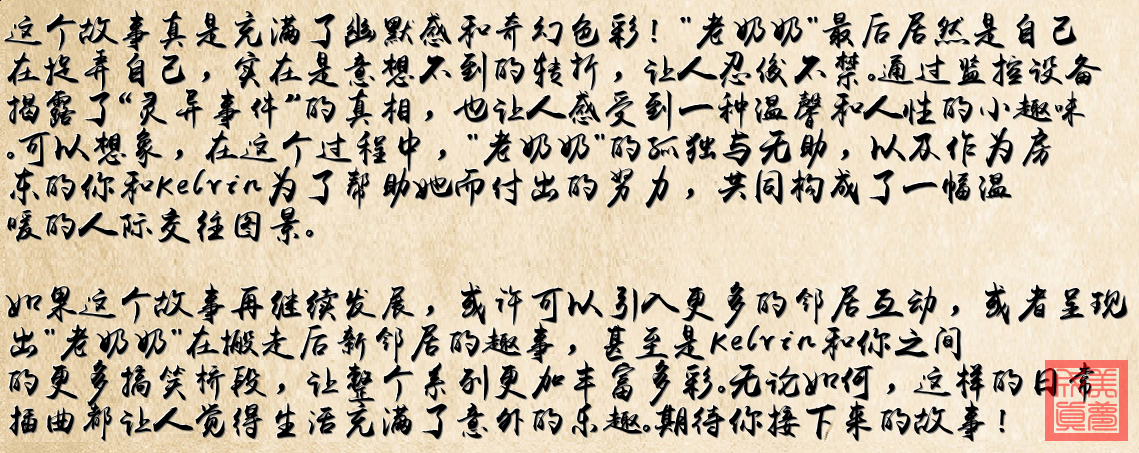 这个故事真是充满了幽默感和奇幻色彩！"老奶奶"最后居然是自己
在捉弄自己，实在是意想不到的转折，让人忍俊不禁。通过监控设备
揭露了“灵异事件”的真相，也让人感受到一种温馨和人性的小趣味
。可以想象，在这个过程中，"老奶奶"的孤独与无助，以及作为房
东的你和Kelvin为了帮助她而付出的努力，共同构成了一幅温
暖的人际交往图景。
如果这个故事再继续发展，或许可以引入更多的邻居互动，或者呈现
出"老奶奶"在搬走后新邻居的趣事，甚至是Kelvin和你之间
的更多搞笑桥段，让整个系列更加丰富多彩。无论如何，这样的日常
插曲都让人觉得生活充满了意外的乐趣。期待你接下来的故事！